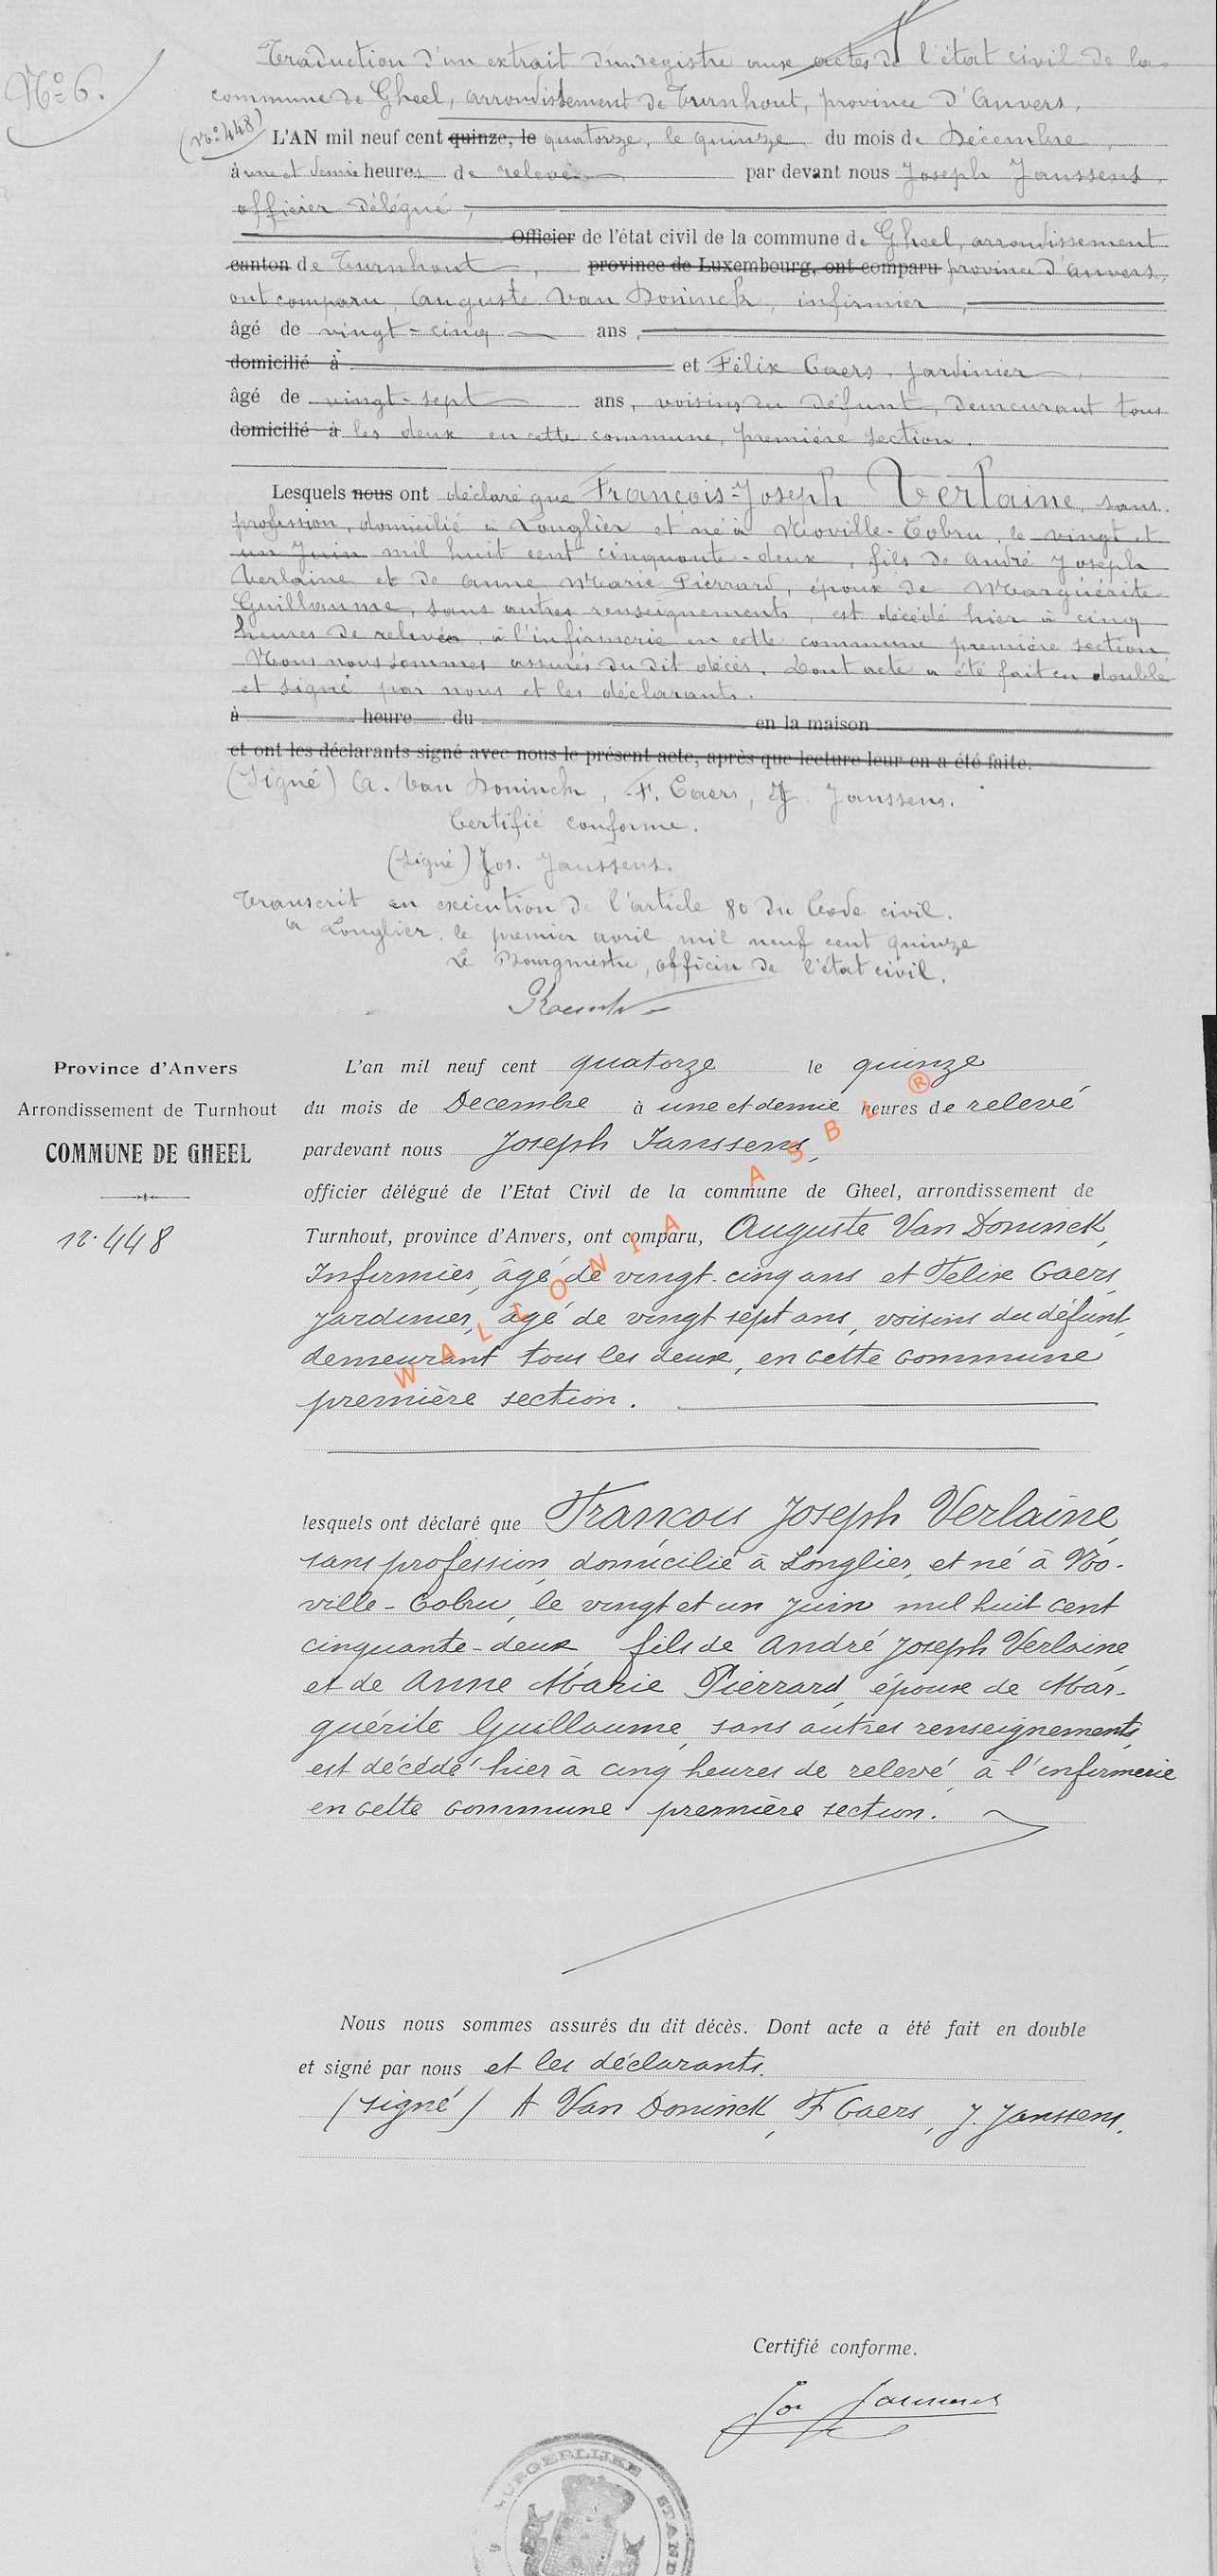 Traduction d'un extrait d'un registre aux actes de l'état civil de la
N° 6.
commune de Gheel, arrondissement de Turnhout, province d'Anvers.
(N° 448)
L'AN mil neuf cent quinze, le quatorze, le quinze du mois de Décembre,
à une et demie heures de relevée par devant nous Joseph Janssens,
officier délégué,
Officier de l'état civil de la commune de Gheel, arrondissement
canton de Turnhout, province de Luxembourg, ont comparu province d'Anvers,
ont comparu, Auguste Van Doninck, infirmier,
âgé de vingt-cinq ans,
domicilié à et Félix Caers, jardinier,
âgé de vingt-sept ans, voisins du défunt, demeurant tous
domicilié à les deux en cette commune, première section.
Lesquels nous ont déclaré que François-Joseph Verlaine, sans
profession, domicilié à Longlier et né à Nioville-Cobru, le vingt et
un Juin mil huit cent cinquante-deux, fils de André Joseph
Verlaine et de Anne Marie Pierrard, époux de Marguérite
Guillaume, sans autres renseignements, est décédé hier à cinq
heures de relevée, à l'infirmerie en cette commune première section
Nous nous sommes assurés du dit décès. Dont acte a été fait en double
et signé par nous et les déclarants.
à heure du en la maison
et ont les déclarants signé avec nous le présent acte, après que lecture leur en a été faite.
(Signé) A. Van Doninck, F. Caers, J. Janssens.
Certifié conforme.
(Signé) Jos. Janssens.
Transcrit en exécution de l'article 80 du Code civil.
à Longlier, le premier avril mil neuf cent quinze
Le Bourgmestre, officier de l'état civil.
Province d'Anvers
Arrondissement de Turnhout
COMMUNE DE GHEEL
n° 448
L'an mil neuf cent quatorze le quinze
du mois de Decembre à une et demie heures de relevé
pardevant nous Joseph Janssens,
officier délégué de l'Etat Civil de la commune de Gheel, arrondissement de
Turnhout, province d'Anvers, ont comparu, Auguste Van Doninck,
Infirmier, âgé de vingt-cinq ans et Felix Caers,
jardinier, âgé de vingt sept ans, voisins du défunt,
demeurant tous les deux, en cette commune
première section.
WALLONIA ASBL ®
lesquels ont déclaré que Francois Joseph Verlaine,
sans profession, domicilié à Longlier, et né à No-
ville-Cobru, le vingt et un Juin mil huit cent
cinquante-deux, fils de André Joseph Verlaine
et de Anne Marie Pierrard, époux de Mar-
guérite Guillaume, sans autres renseignements,
est décédé hier à cinq heures de relevé, à l'infirmerie
en cette commune première section.
Nous nous sommes assurés du dit décès. Dont acte a été fait en double
et signé par nous et les déclarants.
(signé) A Van Doninck, F Caers, J. Janssens.
Certifié conforme.
Jos Janssens
BURGERLIJKE STAND